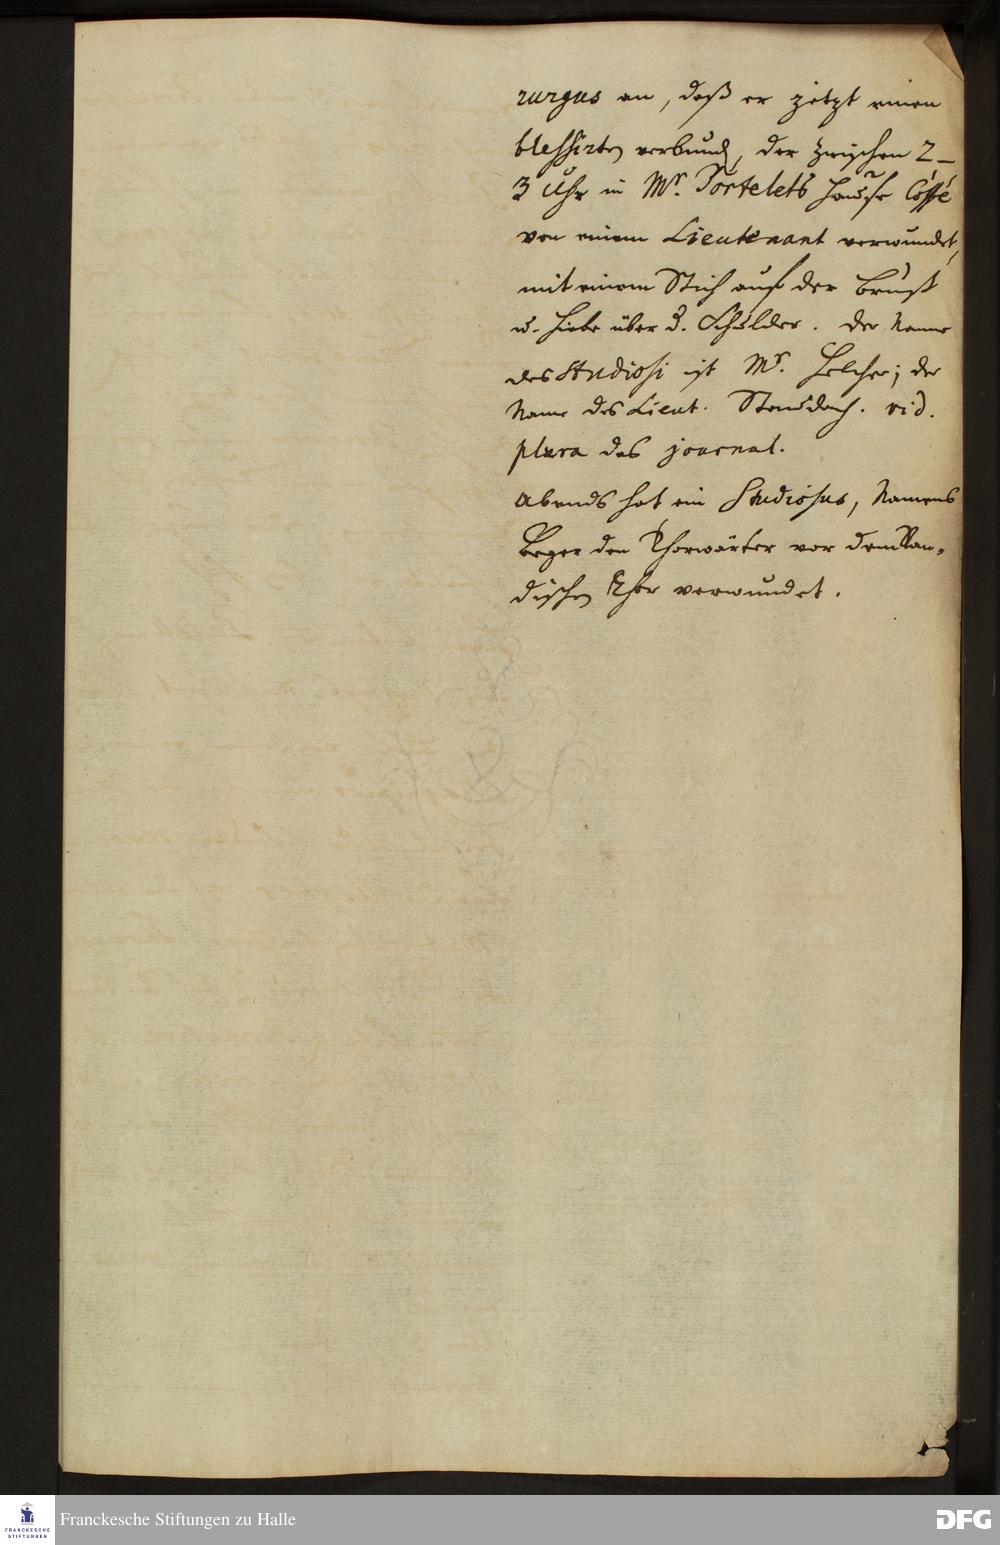 rurgus an, daß er jetzt einen
blessirten verbund, der zwischen 2-
3 Uhr in Mr. Tortelets Hause Coffé
von einem Lieutenant verwundet,
mit einem Stich auf der Brust
u. Hiebe über d. Schulder. Der Name
des Studiosi ist Mr. Helcher; der
Name des Lieut. vid.
plura das journal.
Abends hat ein Studiosus, Namens
Beger den Thorwärter vor dem Ran-
dischen Thor verwundet.
FRANCKESCHE STIFTUNGEN
Franckesche Stiftungen zu Halle
DFG